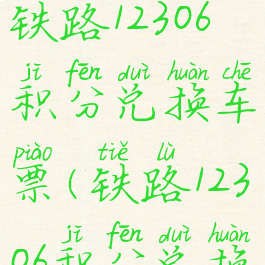 铁路12306
jī fēn duì huàn chē
积分兑换车
piào tiě lù
票(铁路123
jī fēn duì huàn
06积分兑换